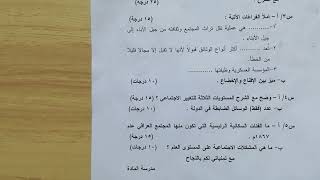 س٣/ أ – املأ الفراغات الآتية : (١٥ درجة)
١–........ هي عملية نقل تراث المجتمع وثقافته من جيل الآباء إلى
جيل الأبناء .
٢–تُعد........ أكثر أنواع الوثائق قبولاً لأنها لا تقبل إلا مجالاً قليلاً
من الخطأ.
٣–المؤسسة العسكرية وظيفتها ........
ب– ميز بين الإقناع والإخضاع . (١٠ درجات)
س٤/ أ – وضح مع الشرح المستويات الثلاثة للتغيير الاجتماعي ؟ (١٥ درجة)
ب– عدد (فقط) الوسائل الضابطة في الدولة . (١٠ درجات)
س٥/ أ– ما الفئات السكانية الرئيسية التي تكون منها المجتمع العراقي عام
١٨٦٧م. (١٥ درجة)
ب– ما هي المشكلات الاجتماعية على المستوى العام ؟ (١٠ درجات)
مع تمنياتي لكم بالنجاح
مدرسة المادة